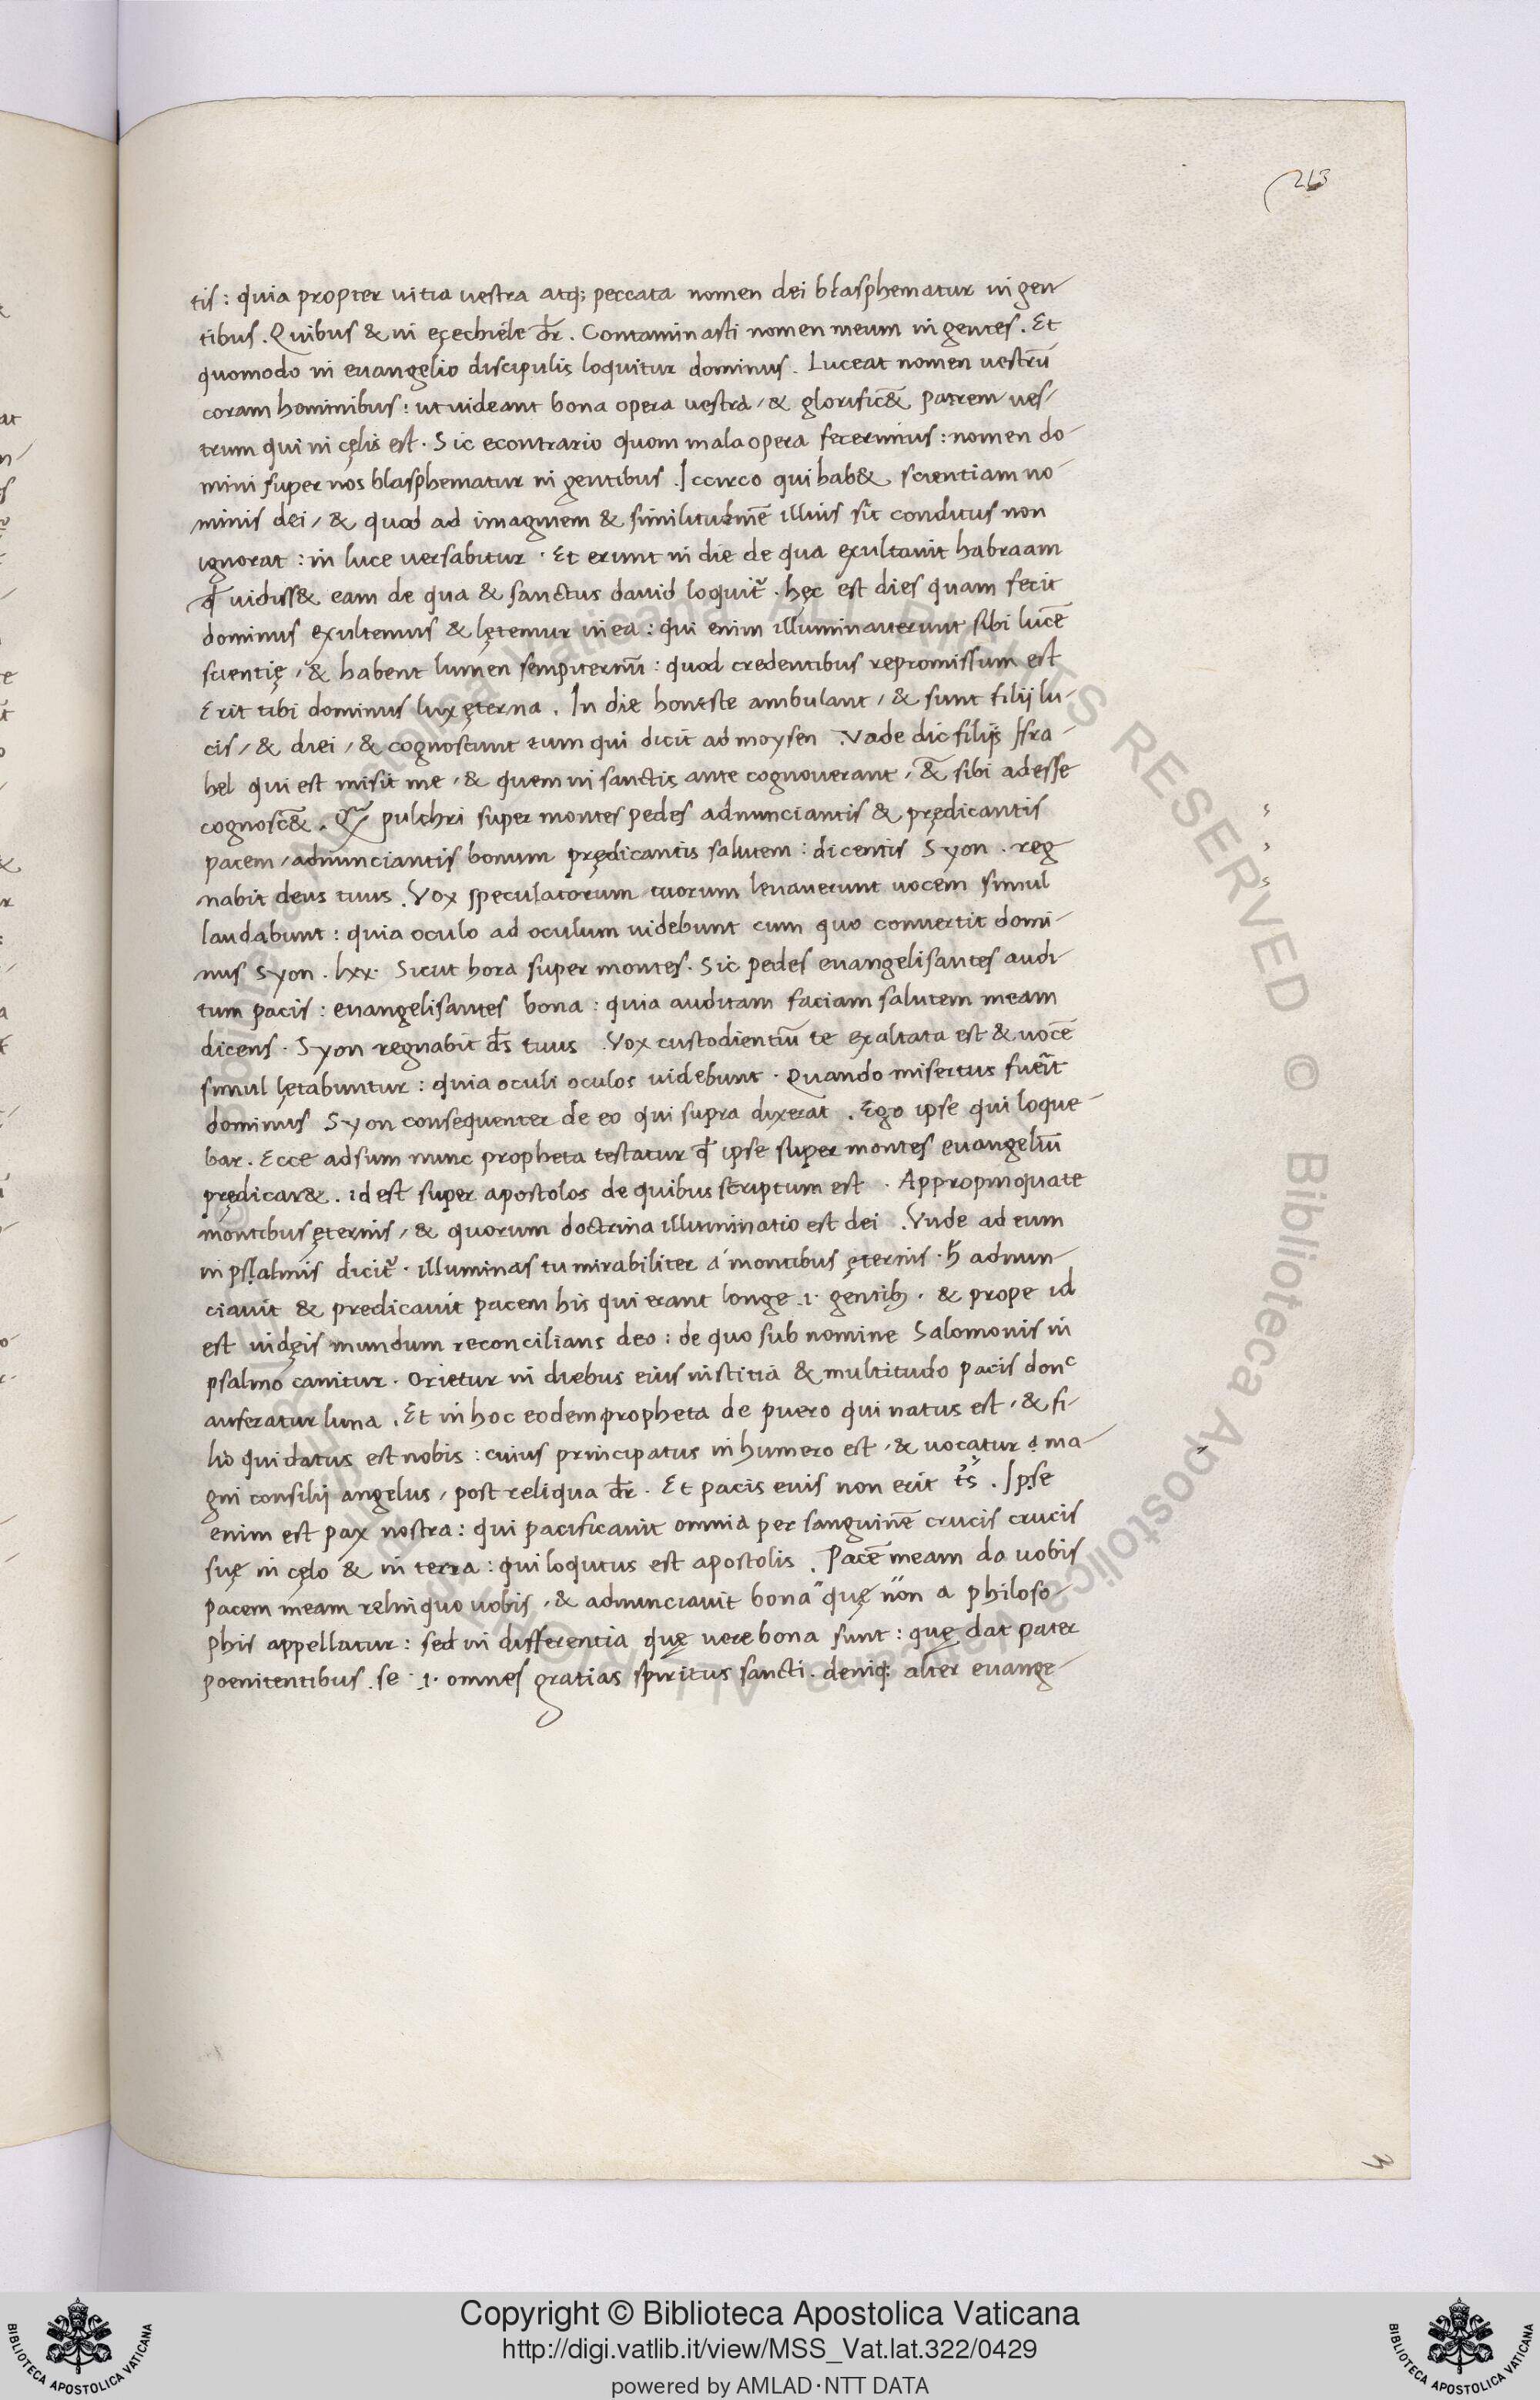 263
tis: quia propter uitia uestra atq; peccata nomen dei blasphematur in gen-
tibus. Quibus & in eçechiele dr̄. Contaminasti nomen meum in gentes. Et
quomodo in euangelio discipulis loquitur dominus. Luceat nomen uestrū
coram hominibus: ut uideant bona opera uestra, & glorific& patrem ues-
trum qui in cęlis est. Sic econtrario quom mala opera fecerimus: nomen do-
mini super nos blasphematur in gentibus. Iccirco qui hab& scientiam no-
minis dei, & quod ad imaginem & similitudinē illius sit conditus non
ignorat: in luce uersabitur. Et erunt in die de qua exultauit habraam
qd̄ uidiss& eam de qua & sanctus dauid loquit᷑. hęc est dies quam fecit
dominus exultemus & lętemur in ea: qui enim illuminauerunt sibi lucē
scientię, & habent lumen sempiternū: quod credentibus repromissum est
Erit tibi dominus lux ęterna. In die honeste ambulant, & sunt filij lu-
cis, & diei, & cognoscunt eum qui dicit ad moysen. Vade dic filijs Isra-
hel qui est misit me, & quem in sanctis ante cognouerant, & sibi adesse
cognosc&. Qȝ pulchri super montes pedes adnunciantis & prędicantis
pacem, adnunciantis bonum prędicantis salutem: dicentis Syon. reg
nabit deus tuus. Vox speculatorum tuorum leuauerunt uocem simul
laudabunt: quia oculo ad oculum uidebunt cum quo conuertit domi-
nus Syon. lxx. Sicut hora super montes. Sic pedes euangelisantes audi-
tum pacis: euangelisantes bona: quia auditam faciam salutem meam
dicens. Syon regnabit d̄s tuus. Vox custodientiū te exaltata est & uocē
simul lętabuntur: quia oculi oculos uidebunt. Quando misertus fuerit
dominus Syon consequenter de eo qui supra dixerat. Ego ipse qui loque-
bar. Ecce adsum nunc propheta testatur qd̄ ipse super montes euangeliū
prędicar&. id est super apostolos de quibus scriptum est. Appropinquate
montibus ęternis, & quorum doctrina illuminatio est dei. Vnde ad eum
in psalmis dicit᷑. illuminas tu mirabiliter á montibus ęternis. h̄ adnun-
ciauit & predicauit pacem his qui erant longe .i. gentib; & prope id
est iudęis mundum reconcilians deo: de quo sub nomine Salomonis in
psalmo canitur. Orietur in diebus eius iustitia & multitudo pacis donᶜ
auferatur luna. Et in hoc eodem propheta de puero qui natus est, & fi-
lio qui datus est nobis: cuius principatus in humero est, & uocatur ma-
gni consilij angelus, post reliqua dr̄. Et pacis euis non erit t᷑s. Ipse
enim est pax nostra: qui pacificauit omnia per sanguinē crucis crucis
suę in cęlo & in terra: qui loqutus est apostolis. Pacē meam do uobis
pacem meam relinquo uobis, & adnunciauit bona quę non a philoso-
phis appellatur: sed in differentia quę uere bona sunt: quę dat pater
poenitentibus se .i. omnes gratias spiritus sancti. deniq; alter euange-
Copyright © Biblioteca Apostolica Vaticana
http://digi.vatlib.it/view/MSS_Vat.lat.322/0429
powered by AMLAD·NTT DATA
BIBLIOTECA APOSTOLICA VATICANA
BIBLIOTECA APOSTOLICA VATICANA